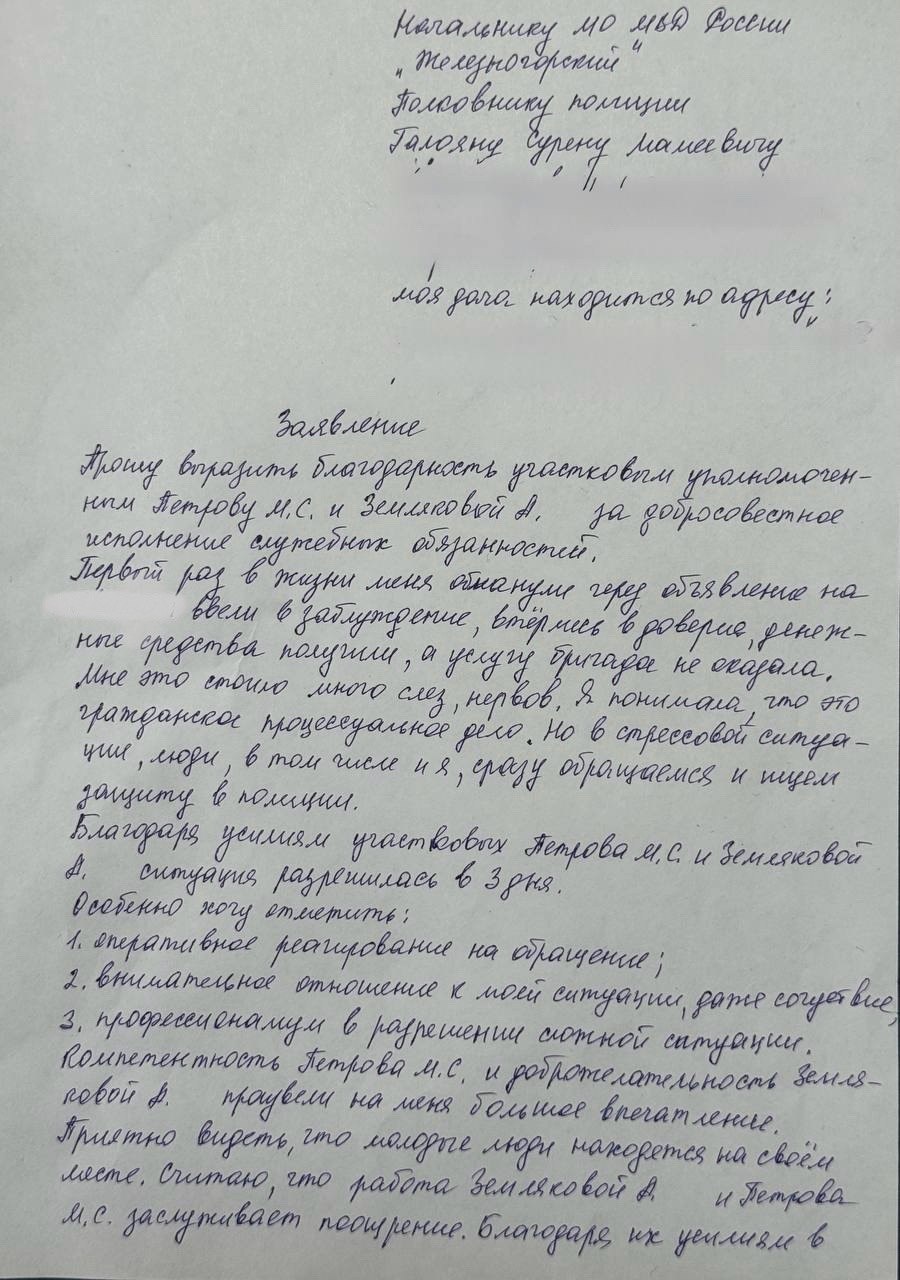 Начальнику МО МВД России
„Железногорский"
Полковнику полиции
Галояну Сурену Мамеевичу
моя дача находится по адресу:
Заявление
Прошу выразить благодарность участковым уполномочен-
ным Петрову М.С. и Земляковой А. за добросовестное
исполнение служебных обязанностей.
Первый раз в жизни меня обманули через объявление на
ввели в заблуждение, втёрлись в довериа, денеж-
ные средства получили, а услугу бригада не оказала.
Мне это стоило много слез, нервов. Я понимала, что это
гражданское процессуальное дело. Но в стрессовой ситуа-
ции, люди, в том числе и я, сразу обращаемся и ищем
защиту в полиции.
Благодаря усилиям участковых Петрова М.С. и Земляковой
А. ситуация разрешилась в 3 дня.
Особенно хочу отметить:
1. оперативное реагирование на обращение;
2. внимательное отношение к моей ситуации, даже сочуствие;
3. профессионализм в разрешении сложной ситуации.
Компетентность Петрова М.С. и доброжелательность Земля-
ковой А. произвели на меня большое впечатление.
Приятно видеть, что молодые люди находятся на своём
месте. Считаю, что работа Земляковой А. и Петрова
М.С. заслуживает поощрение. Благодаря их усилиям в